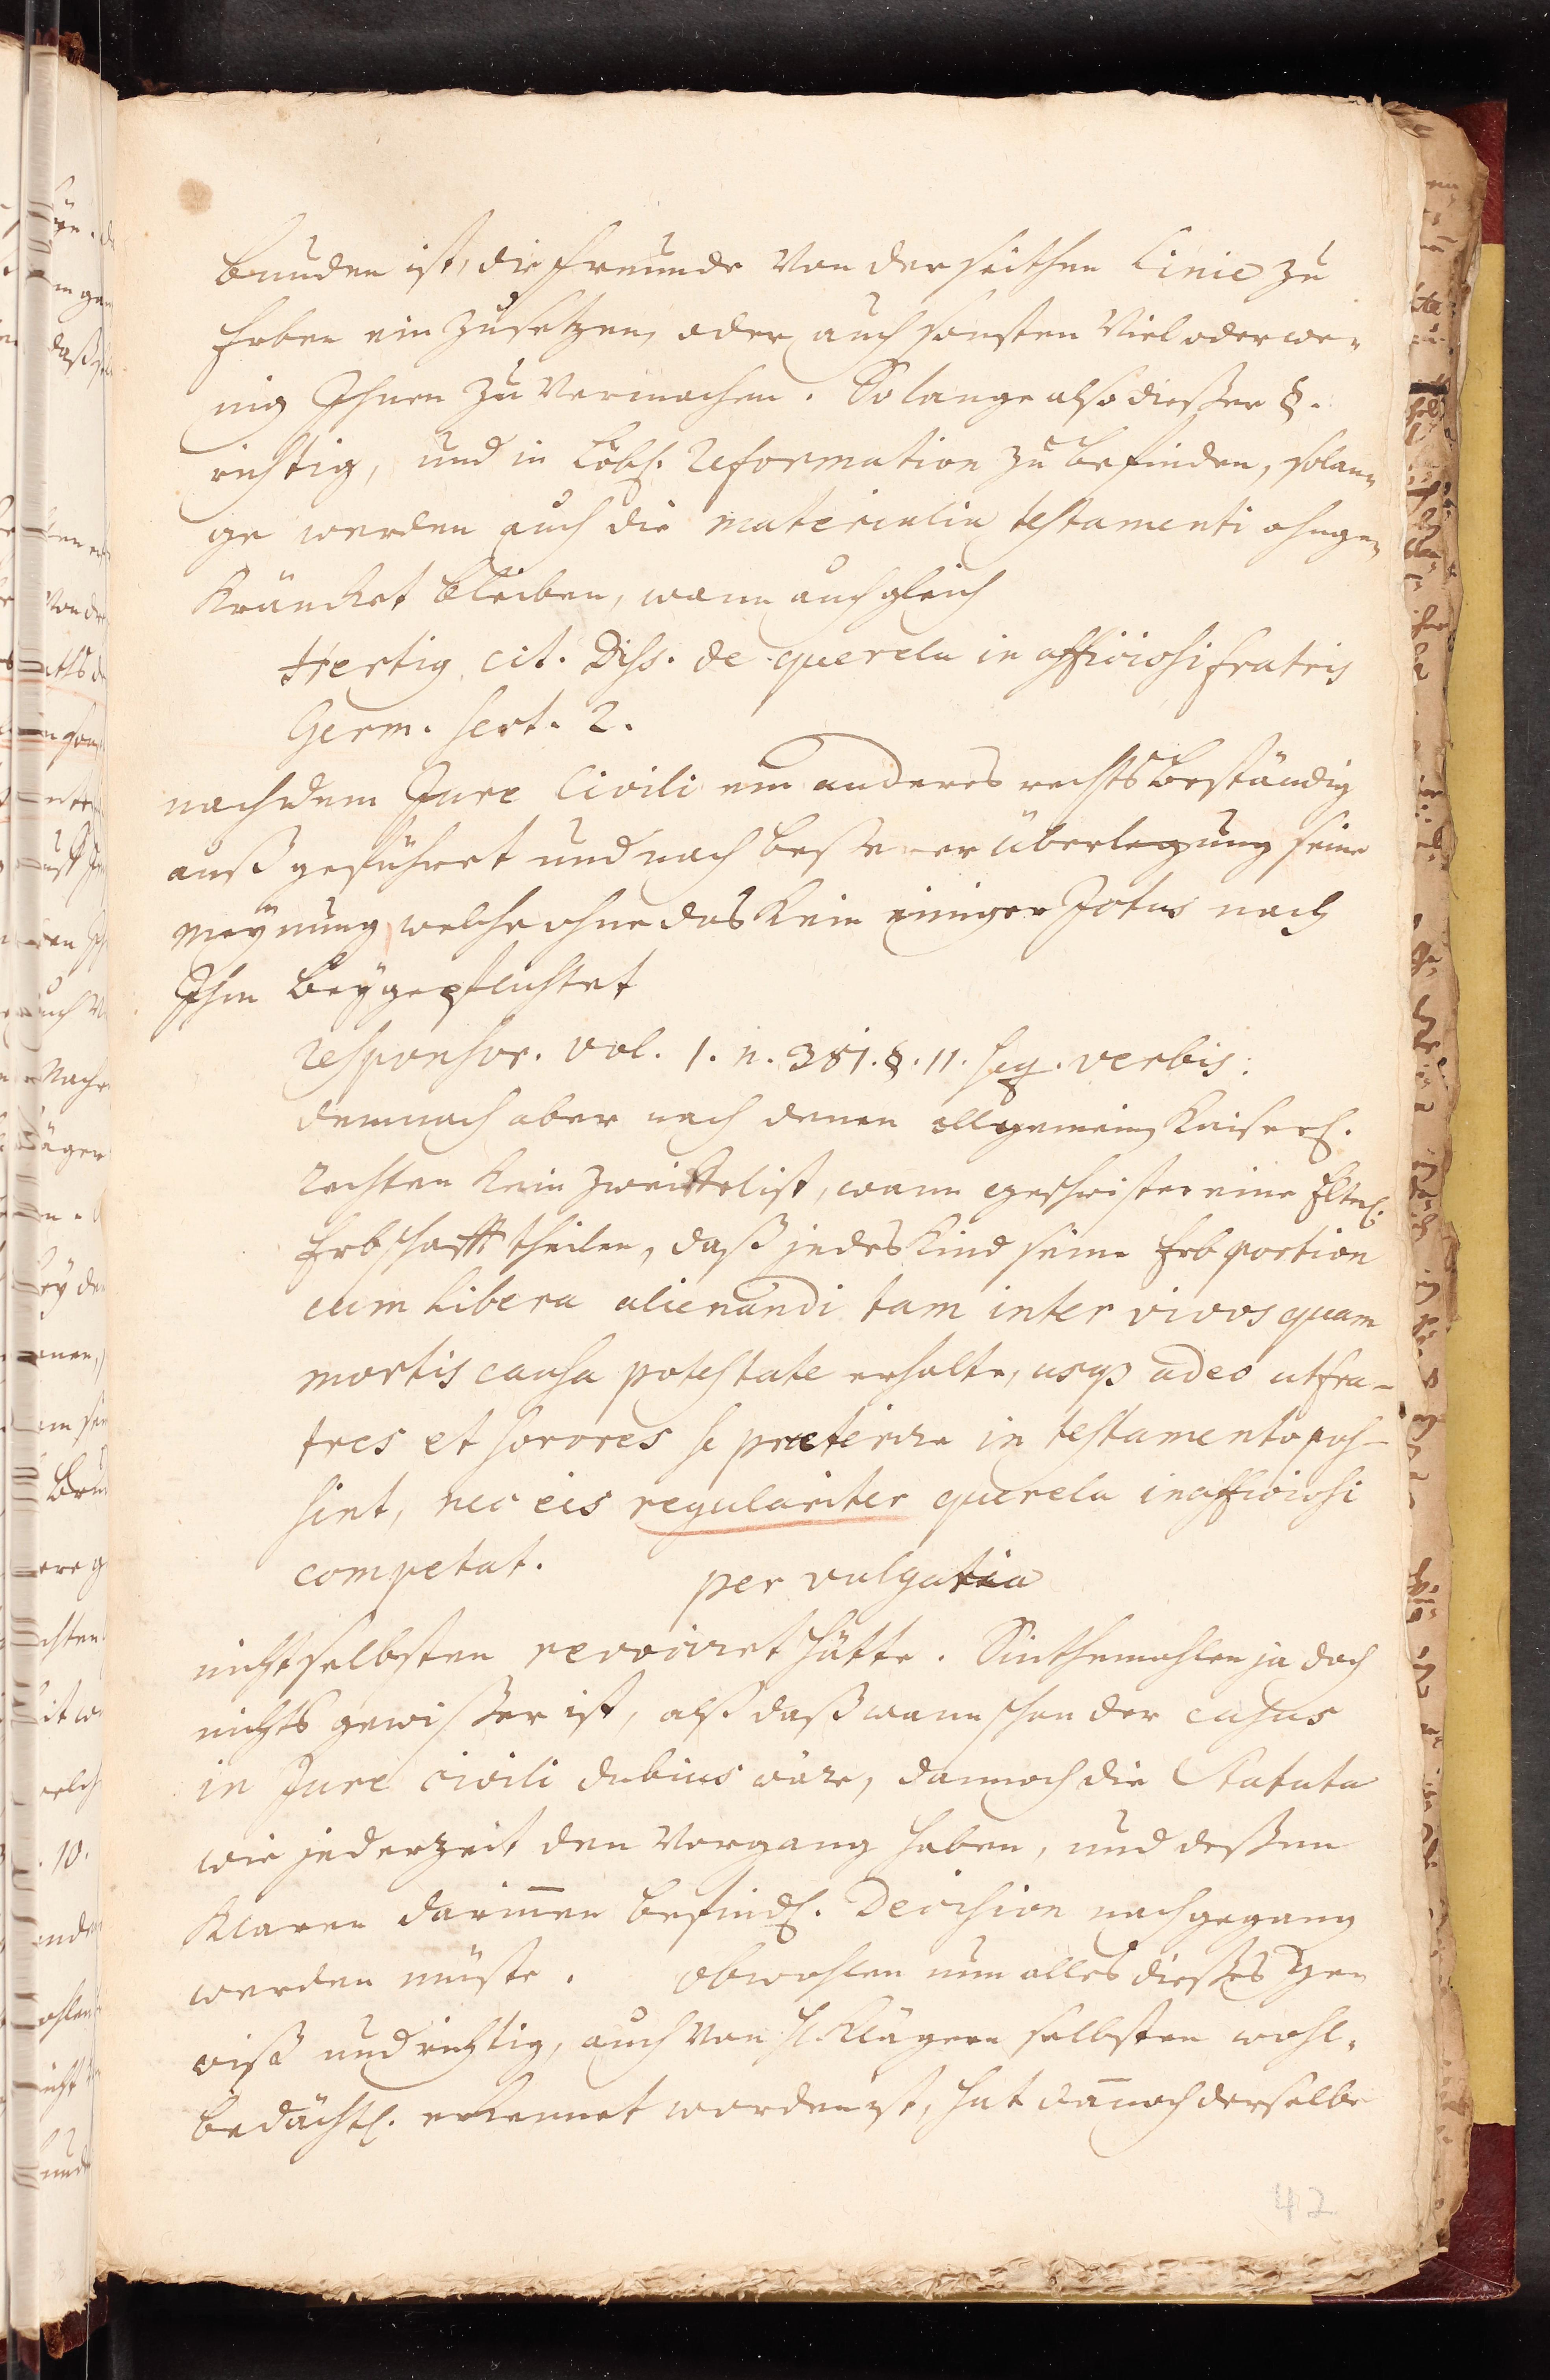 bunden ist, die freunde Von der seithen Linie zu
Erben ein zu setzen, oder auch sonsten Viel oder we-
nig Ihnen zu Vermachen. So lange also dießer §.
richtig, und in Löbl. Reformation zu befinden, solan-
ge werden auch die materialia testamenti ohnge-
kräncket bleiben, wann auch gleich
Hertig cit. Diss. de querela inofficiosi fratris
Germ. sect. 2.
nach dem Jure Civili ein anderes rechtsbeständig
außgeführet und nach besserer Überlegung seine
Meÿnung welche ohne das kein einiger Jctus nach
Ihm beÿgepflichtet
responsor. vol. 1. n. 381. §. 11. seq. verbis:
demnach aber nach denen allgemeinen Kaiserl.
rechten kein zweiffel ist, wann geschwister eine Elterl.
Erbschafft theilen, daß jedes Kind seine Erb portion
cum libera alienandi tam inter vivos quam
mortis causa potestate erhalte, usq3 adeo ut fra-
tres et sorores se praeterire in testamento pos-
sint, nec eis regulariter querela inofficiosi
competat. per vulgata
nicht selbsten revociret hätte. Sinthemahlen ja doch
nichts gewißer ist, alß daß wann schon der casus
in Jure civili dubius wäre, dannoch die Statuta
wie jederzeit den Vorgang haben, und deßen
klaren darinnen befindl. Decision nachgegangen
werden müste. Obwohlen nun alles dießes ge-
wiß und richtig, auch Von H. Klägern selbsten wohl-
bedächtl. erkennet worden ist, hat dannoch derselbe
42